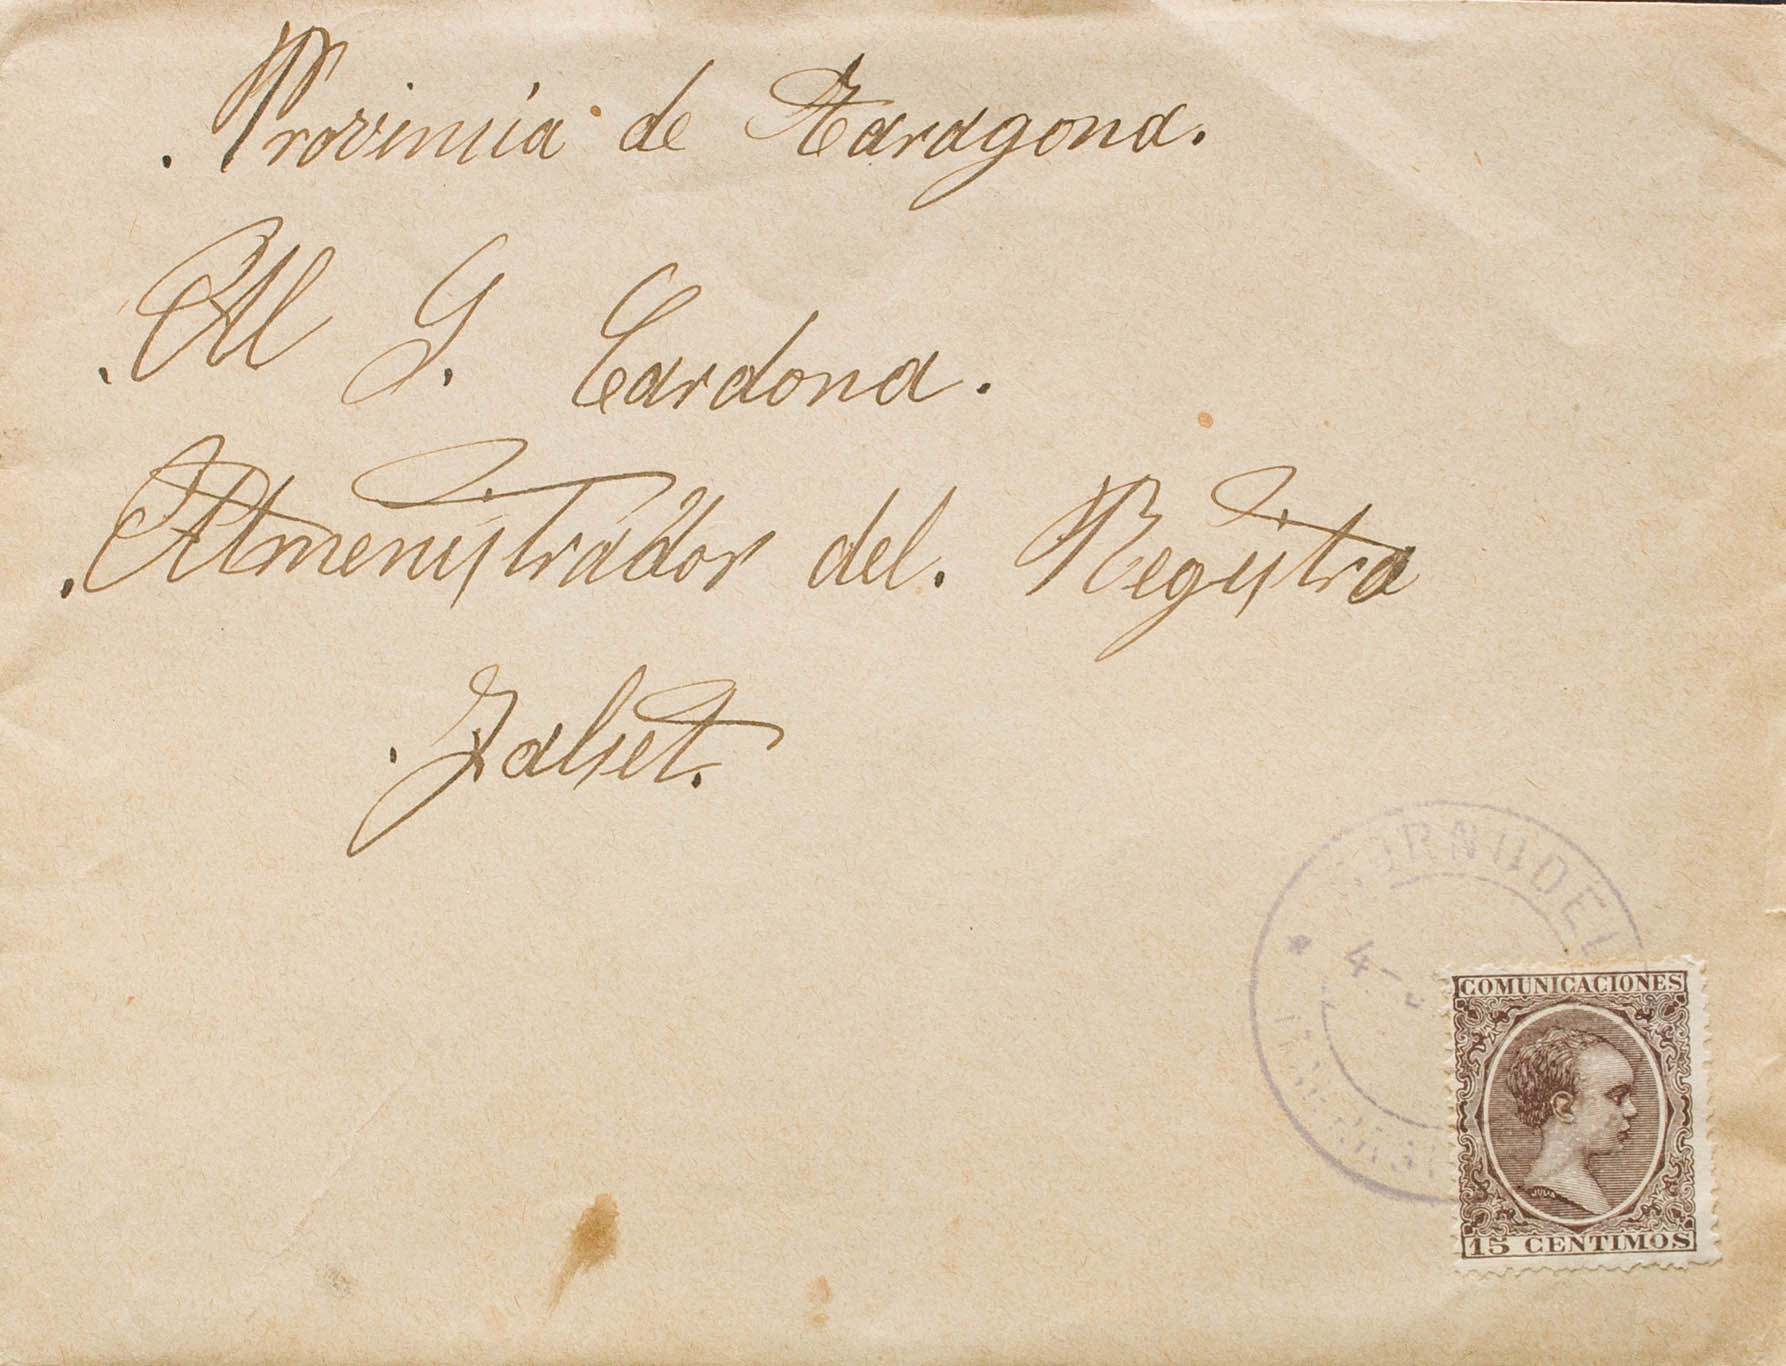 Provincia de Taragona.
Al G. Cardona.
Atmenistrador del. Registra
Falset.
CORNUDELLA
4-
COMUNICACIONES
JULIA
15 CENTIMOS